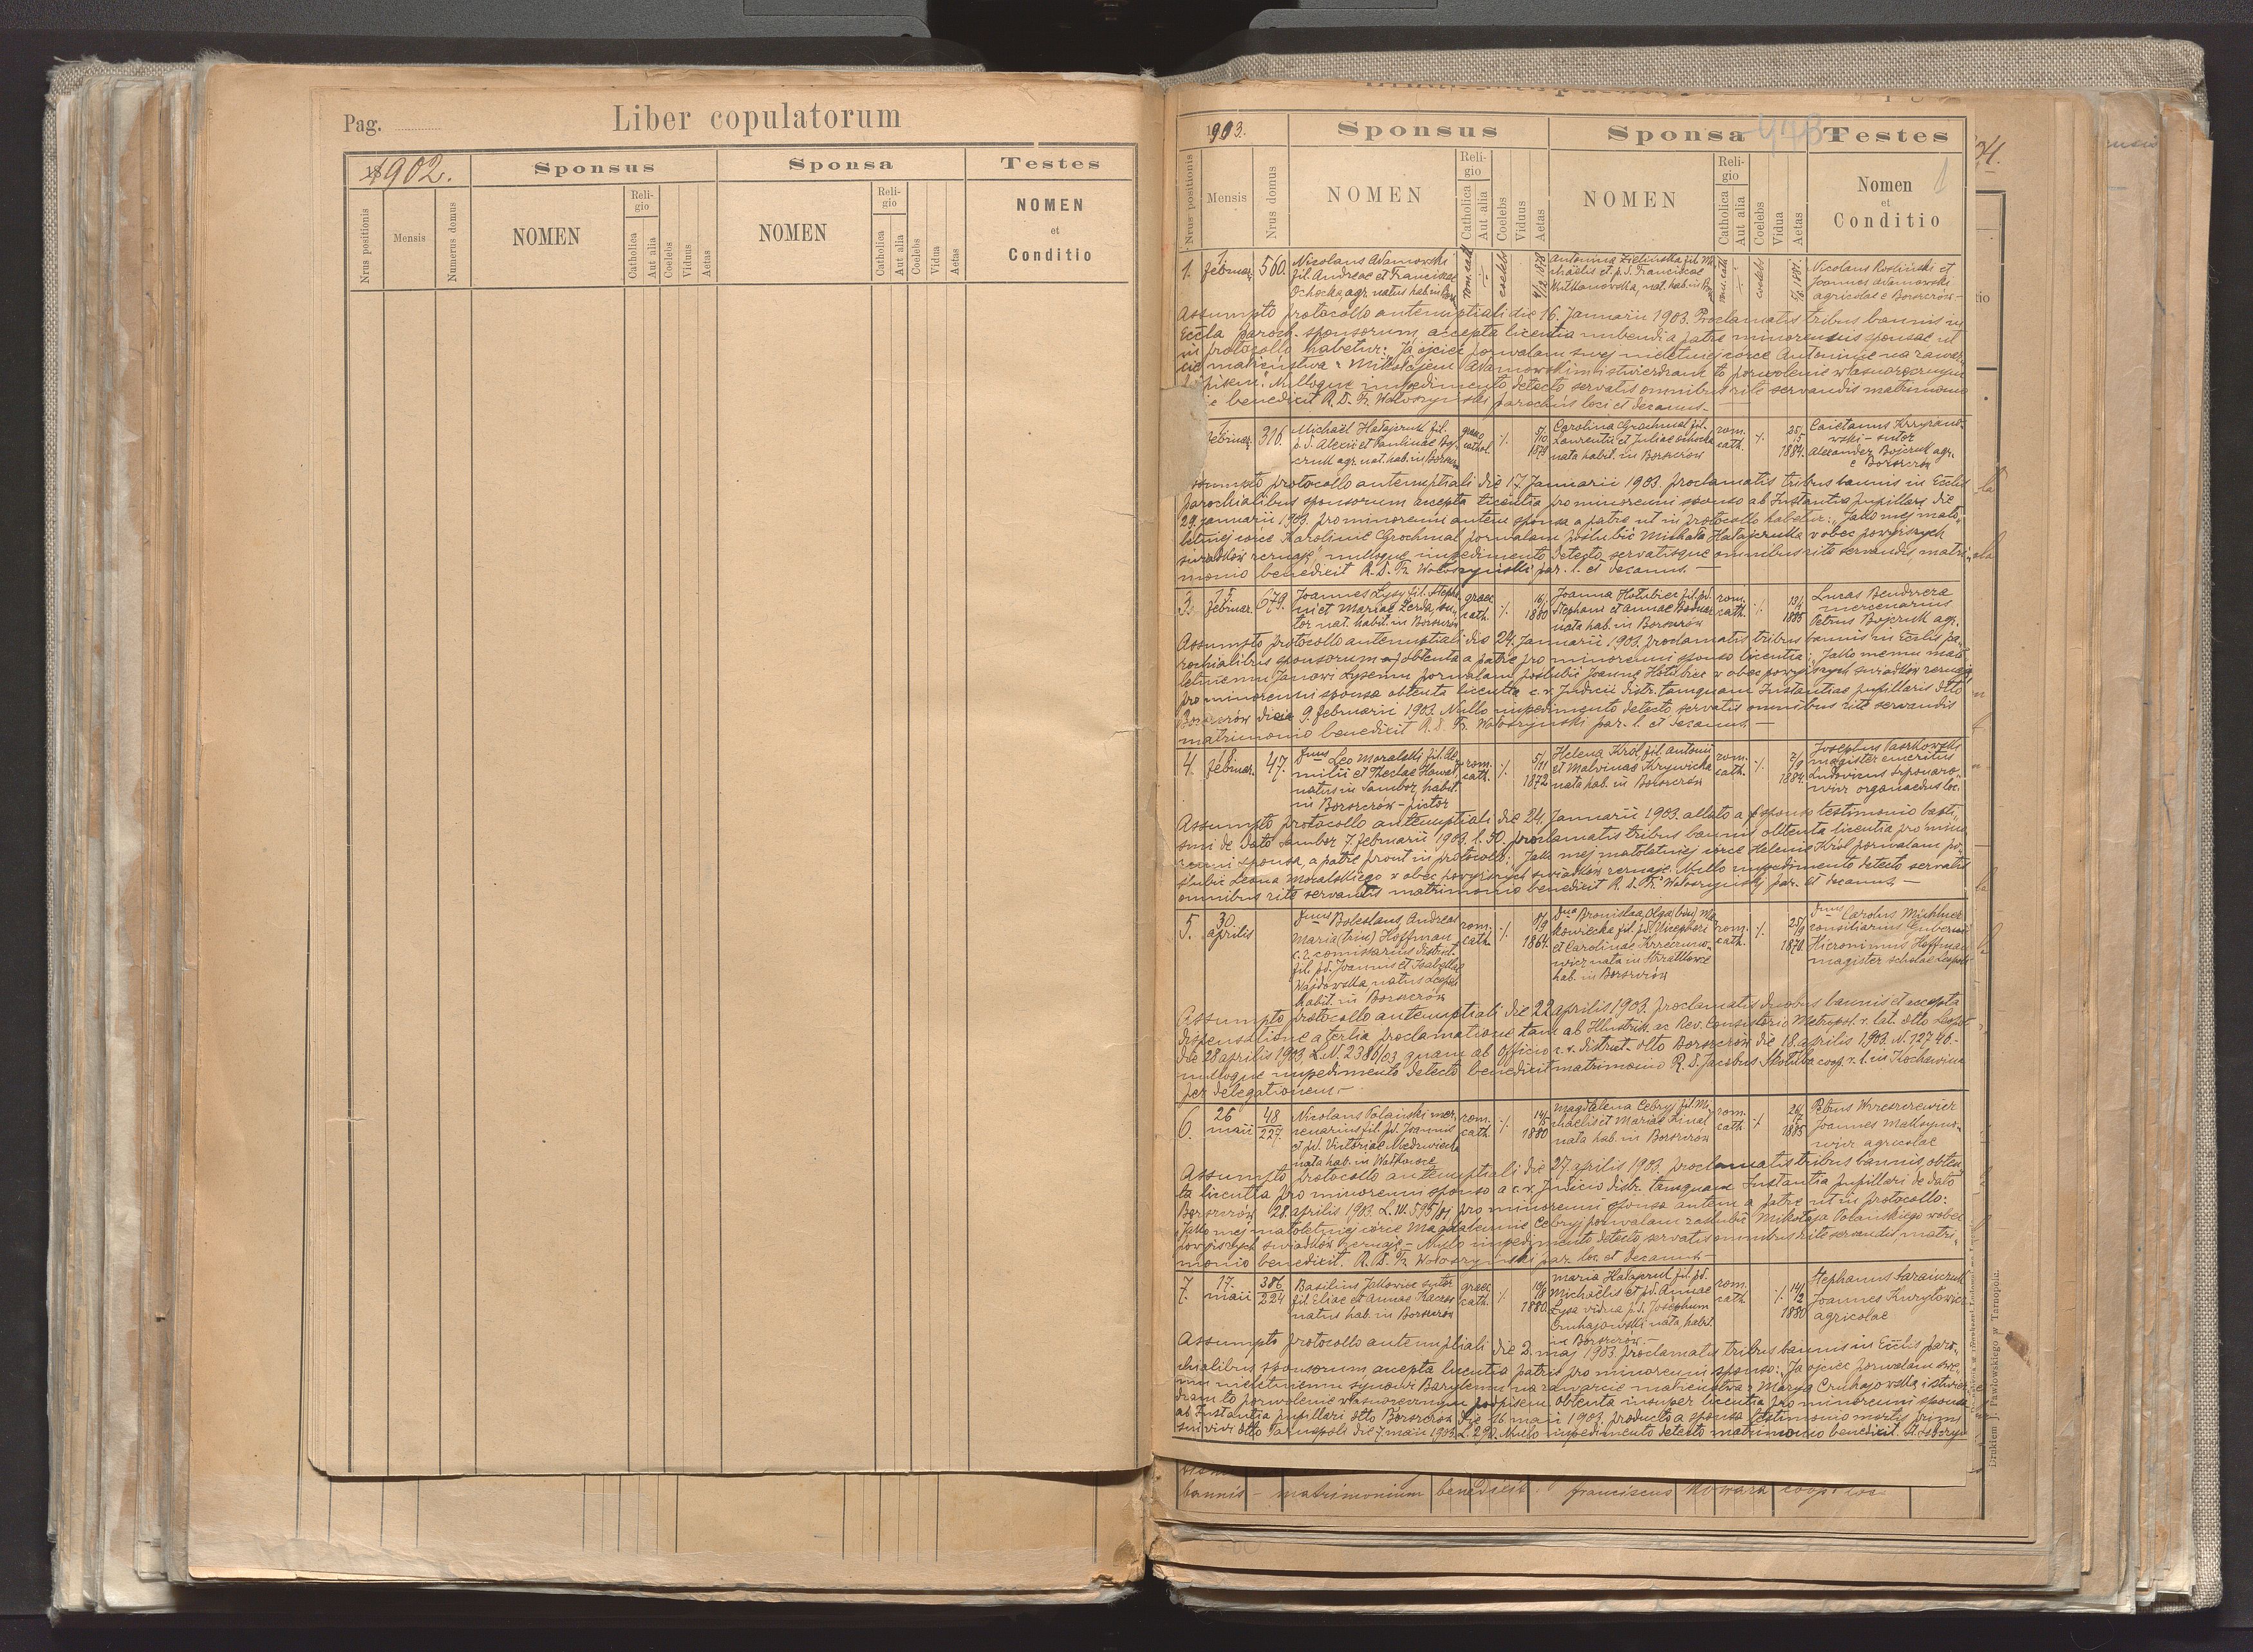 Pag.
Liber copulatorum
1902.
Sponsus
Sponsa
Testes
Nrus positionis
Mensis
Numerus domus
NOMEN
Reli-
gio
Catholica
Aut alia
Coelebs
Viduus
Aetas
NOMEN
Reli-
gio
Catholica
Aut alia
Coelebs
Vidua
Aetas
NOMEN
et
Conditio
1903.
Sponsus
Sponsa
Testes
Nrus positionis
Mensis
Nrus domus
NOMEN
Reli-
gio
Catholica
Aut alia
Coelebs
Viduus
Aetas
NOMEN
Reli-
gio
Catholica
Aut alia
Coelebs
Vidua
Aetas
Nomen
et
Conditio
1. 1. Februar. 560.
Nicolaus Adamowski
fil. Andreae et Franciscae
Ochocka, agr. natus hab. in
rom. cath. coelebs 4/12 1878
Antonina Zielińska fil. Mi
chaelis et p.d. Franciscae
Witkonowska, nat. hab. in
coelebs 5/6 1881.
Nicolaus Rosliński et
Joannes Adamowski
agricolae e Borszczów
Assumpto protocollo antenuptiali die 16. Januarii 1903. Proclamatis tribus bannis in
Eccla paroch. sponsorum, accepta licentia nubendi a patre minorennis sponsae ut
in protocollo habetur: "Ja ojciec pozwalam swej nieletniej córce Antoninie na zawar
cie małżeństwa z Mikołajem Adamowskim i stwierdzam to pozwolenie własnoręcznym
pisem". Nulloque impedimento detecto servatis omnibus rite servandis matrimonio
benedixit R. D. Fr. Wołoszyński parochus loci et decanus.
1 Februar. 316.
Michaël Hałajczuk fil.
p.d. Alexii et Paulinae Boj
czuk agr. nat. hab. in Borszcz
graeco cathol. 5/10 1879
Carolina Grochmal fil.
Laurentii et Juliae
nata habit. in Borszczów
rom. cath. 25/5 1884.
Caietanus Krzyżano
wski - sutor
Alexander Bojczuk agr.
e Borszczów
Assumpto protocollo antenuptiali die 17. Januarii 1903. proclamatis tribus bannis in Ecclis
parochialibus sponsorum accepta licentia pro minorenni sponso ab Instantia pupillari die
29. Januarii 1903. pro minorenni autem sponsa a patre ut in protocollo habetur: "Jako mej mało
letniej córce Karolinie Grochmal pozwalam poślubić Michała Hałajczuka w obec powyższych
świadków zeznaję", nulloque impedimento detecto servatisque omnibus rite servandis, matri
monio benedixit R. D. Fr. Wołoszyński par. l. et decanus.
3. 15 Februar. 679.
Joannes Łysy fil. Stepha
ni et Mariae Zerda, su
tor nat. habit. in Borszczów
graec. cath. 16/1 1880
Joanna Hołubiec fil. p.d.
Stephani et Annae Bodnar
nata hab. in Borszczów
rom. cath. 13/4 1885
Lucas Bendzera
mercenarius
Petrus Bojczuk agr.
Assumpto protocollo antenuptiali die 24. Januarii 1903. proclamatis tribus bannis in Ecclis pa
rochialibus sponsorum obtenta a patre pro minorenni sponso licentia: "Jako memu mało
letniemu Janowi Łysemu pozwalam poślubić Joannę Hołubiec w obec powyższych świadków zeznaję"
pro minorenni sponsa obtenta licentia c. r. Judicii distr. tamquam Instantiae pupillaris dtto
Borszczów die 9. Februarii 1903. Nullo impedimento detecto, servatis omnibus rite servandis
matrimonio benedixit R. D. Fr. Wołoszyński par. l. et decanus.
4. 8 Februar. 47.
Dnus Leo Moralski fil. Ae
milii et Theclae Hawel
natus in Sambor, habit.
in Borszczów - pictor
rom. cath. 5/11 1872
Helena Król fil. Antonii
et Malvinae Krzywicka
nata hab. in Borszczów
rom. cath. 2/9 1884
Josephus Paszkowski
magister emeritus
Ludovicus Szponaro
wicz organaedus loc.
Assumpto protocollo antenuptiali die 24. Januarii 1903. allato a sponso testimonio bapti
smi de dato Sambor 7. Februarii 1903. l. 50. proclamatis tribus bannis obtenta licentia pro mino
renni sponsa, a patre prout in protocollo: "Jako mej małoletniej córce Helenie Król pozwalam po
ślubić Leona Moralskiego w obec powyższych świadków zeznaję. Nullo impedimento detecto servatis
omnibus rite servandis matrimonio benedixit R. D. Fr. Wołoszyński par. et decanus.
5. 30 Aprilis
Dnus Boleslaus, Andreas
Maria (trin.) Hoffman
c. r. comissarius district.
fil. p.d. Joannis et Isabellae
Wajdowska, natus Leopoli
habit. in Borszczów
rom. cath. 8/9 1864.
Dna Bronislaa, Olga (bin.) Ma
kowiecka fil. p.d. Nicephori
et Carolinae Krzeczuno
wicz nata in
hab. in Borszczów
rom. cath. 25/9 1870
Dnus Carolus Michhuer
consiliarius Gubernii
Hieronimus Hoffman
magister scholae Leopoli
Assumpto protocollo antenuptiali die 22 Aprilis 1903. proclamatis duobus bannis et accepta
dispensatione a tertia proclamatione tam ab Illustrik. ac Rev. Consistorio Metropol. r. lat. dtto Leopol.
die 28 Aprilis 1903. L.N. 2386/03 quam ab Officio c. r. district. dtto Borszczów die 18. Aprilis 1903. N. 12740.
nulloque impedimento detecto benedixit matrimonio R. D. Jacobus Skotulba coop. r. l. in Kochawina
per delegationem.
6. 26 Maii 48/227.
Nicolaus Polański mer
cenarius fil. p.d. Joannis
et p.d. Victoriae Niedzwiecka
nata hab. in Wałkowce
rom. cath. 14/5 1880
Magdalena Cebryj fil. Mi
chaelis et Mariae
nata hab. in Borszczów
rom. cath. 26/7 1885
Petrus Wereszczewicz
Joannes Maksymo
wicz agricolae
Assumpto protocollo antenuptiali die 27. Aprilis 1903. proclamatis tribus bannis, obten
ta licentia pro minorenni sponso a c. r. Judicio distr. tamquam Instantia pupillari de dato
Borszczów 28. Aprilis 1903. pro minorenni sponsa autem a patre ut in protocollo:
"Jako mej małoletniej córce Magdalenie Cebryj pozwalam zaślubić Mikołaja Polańskiego wobec
powyższych świadków zeznaję - Nullo impedimento detecto servatis omnibus rite servandis, matri
monio benedixit. R. D. Fr. Wołoszyński par. loc. et decanus.
7. 17. Maii 386/224
Basilius Jakowicz sutor
fil. Eliae et Annae Kaczor
natus hab. in Borszczów
graec. cath. 1880.
Maria Hałajczuk fil. p.d.
Michaëlis et p.d. Annae
Łysa vidua p.d. Josephum
Czuhajowski nata, habit.
in Borszczów.
rom. cath. 14/2 1880
Stephanus Sarańczuk
Joannes Kuryłowicz
agricolae
Assumpto protocollo antenuptiali die 2. maj 1903. proclamatis tribus bannis in Ecclis paro
chialibus sponsorum, accepta licentia patris pro minorenni sponso: "Ja ojciec pozwalam swe
mu nieletniemu synowi Bazylemu na zawarcie małżeństwa z Maryą Czuhajowską i stwier
dzam to pozwolenie własnoręcznym podpisem. Obtenta insuper licentia pro minorenni sponsa
ab Instantia pupillari dtto Borszczów die 16 maii 1903. producto a sponsa testimonio mortis primi
sui viri dtto Tarnopoli die 7 maii 1903. L. 290. Nullo impedimento detecto matrimonio benedixit.
Drukiem J. Pawłowskiego w Tarnopolu.
bannis - matrimonium benedixit. Franciscus Nowara coop. loc.